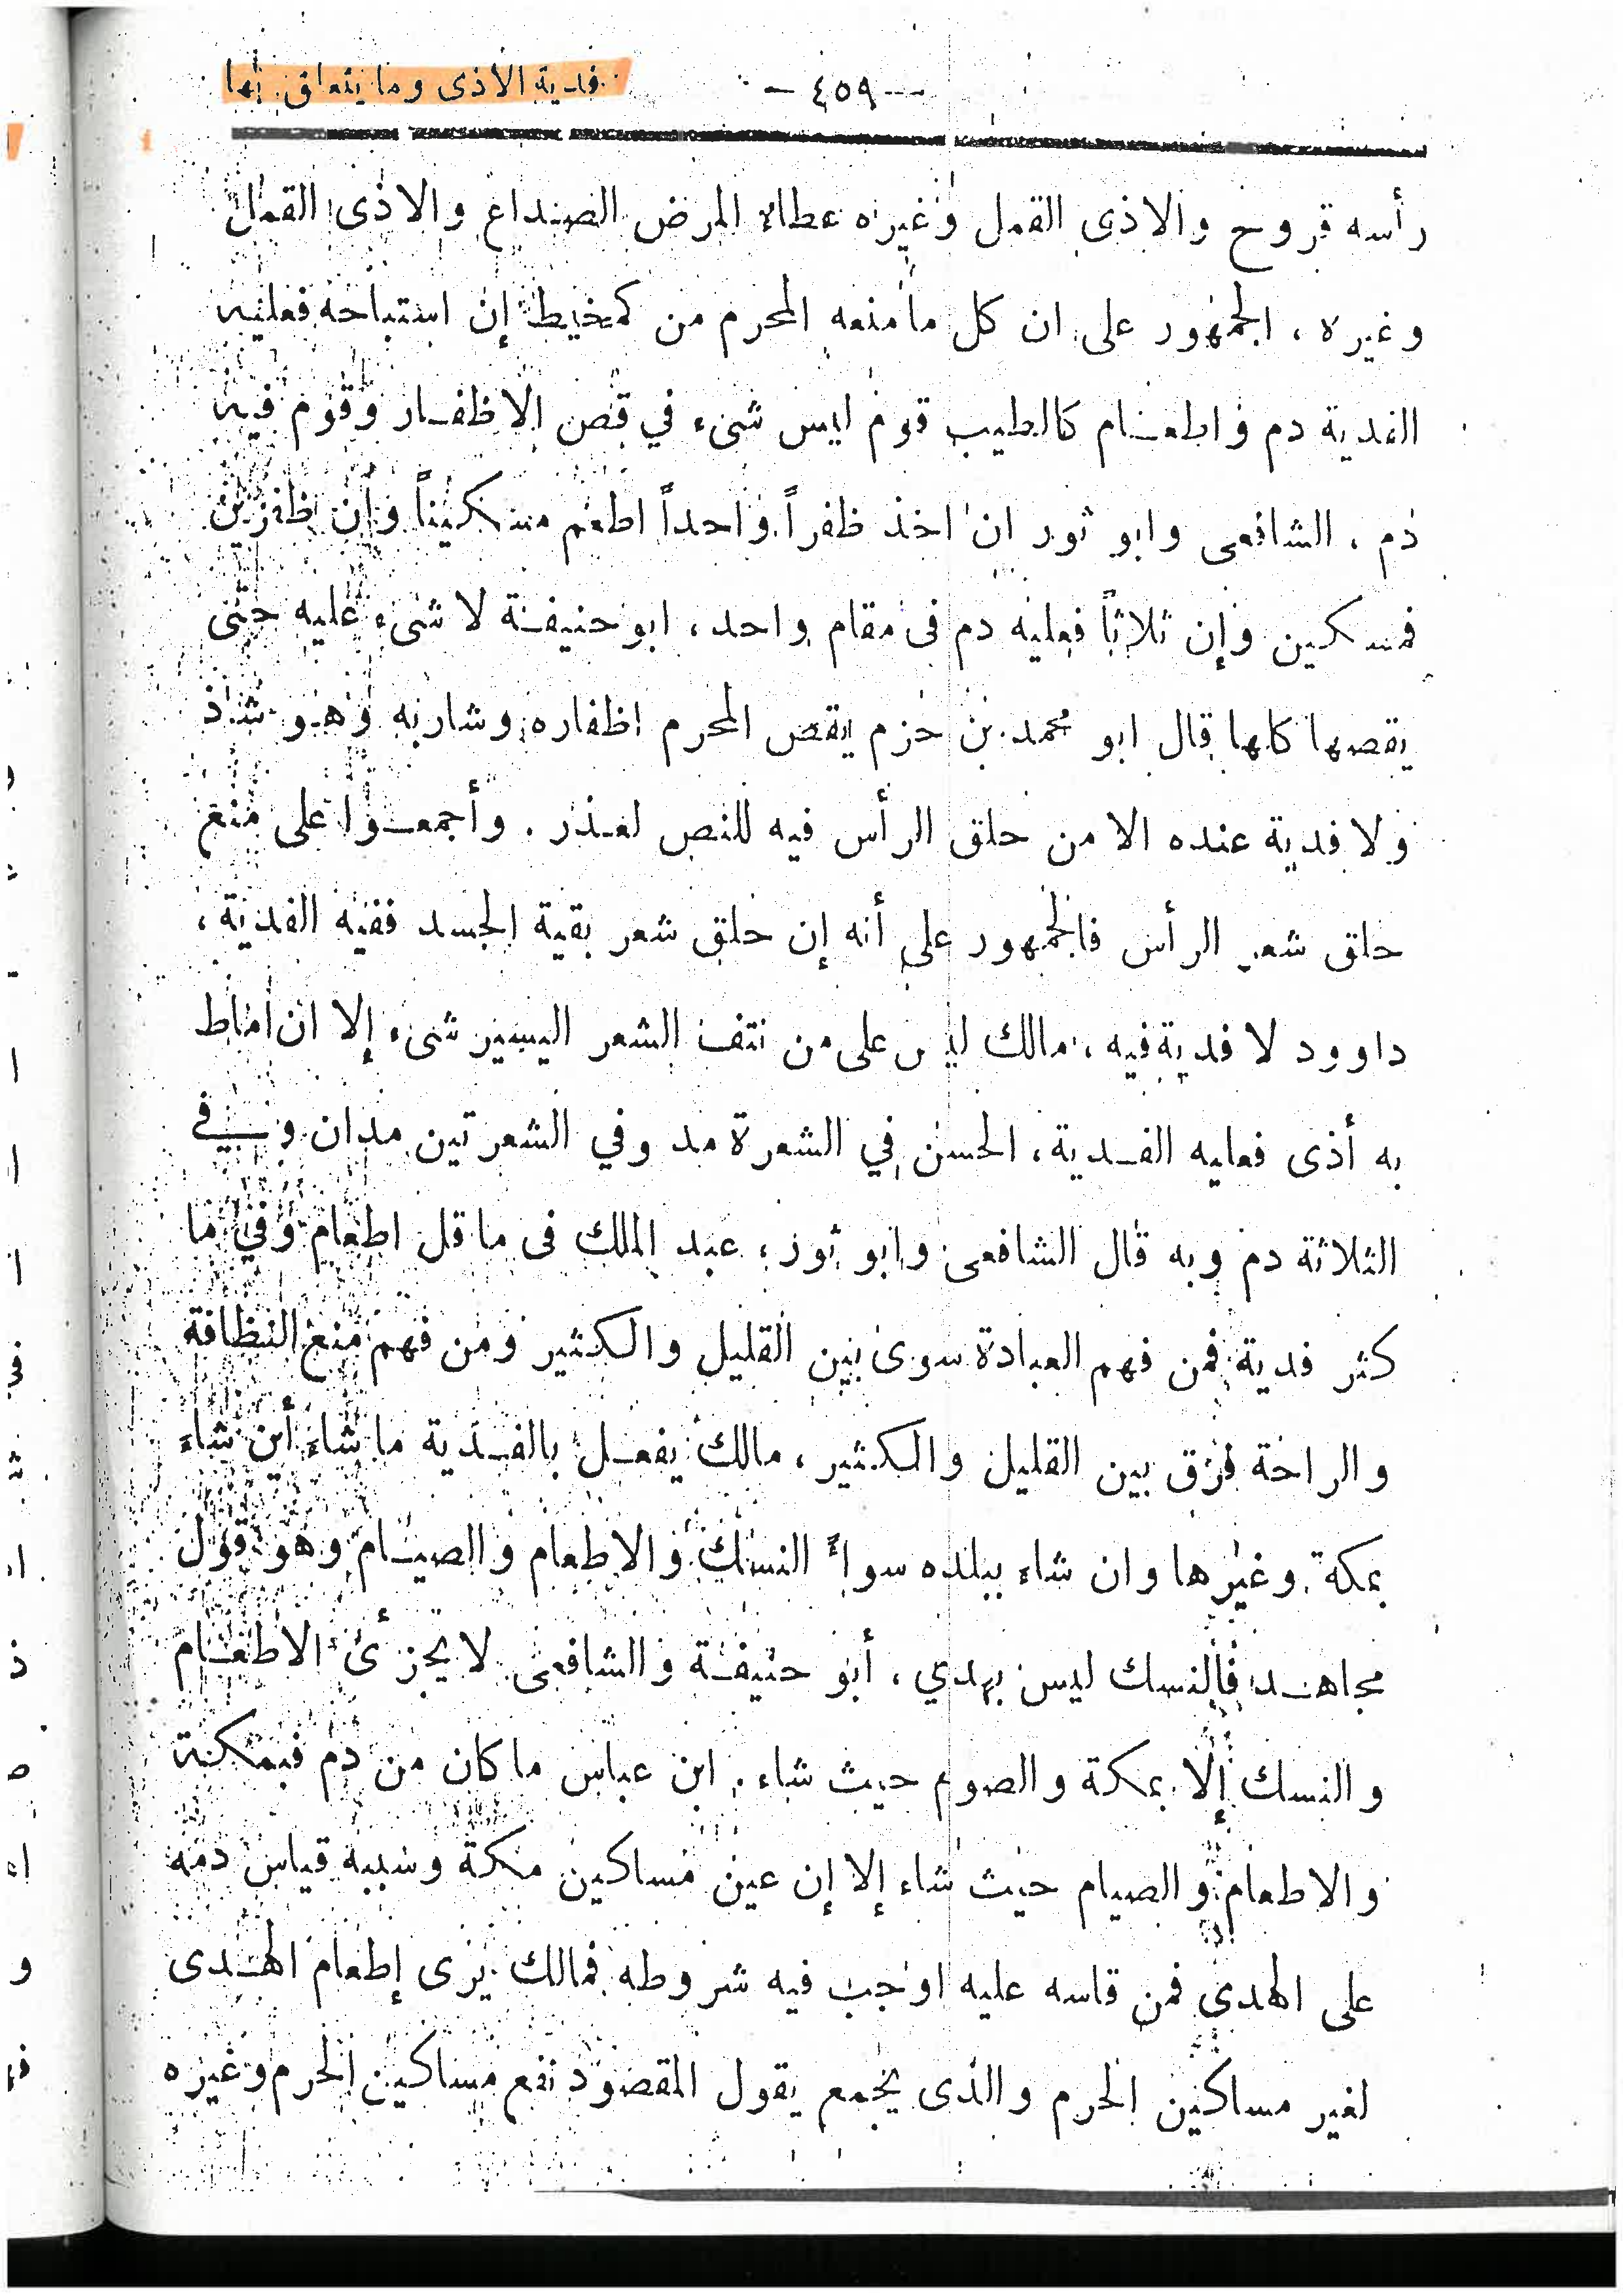 فدية الاذى وما يتعلق بها
— ٤٥٩ —
رأسه قروح والاذى القمل وغيره عطاء المرض الصداع والاذى القمل
وغيره ، الجمهور على ان كل مامنعه المحرم من كمخيط إن استباحه فعليه
الفدية دم واطعام كالطيب قوم ليس شىء في قص الاظفار وقوم فيه
دم ، الشافعى وابو ثور ان اخذ ظفراً واحداً اطعم مسكيناً وان ظفرين
فمسكين وإن ثلاثاً فعليه دم فى مقام واحد ، ابو حنيفة لا شىء عليه حتى
يقصها كلها قال ابو محمد بن حزم يقص المحرم اظفاره وشاربه وهو شاذ
ولا فدية عنده الا من حلق الرأس فيه للنص لعذر . وأجمعوا على منع
حلق شعر الرأس فالجمهور على أنه إن حلق شعر بقية الجسد ففيه الفدية ،
داوود لا فدية فيه ، مالك ليس على من نتف الشعر اليسير شىء إلا ان اماط
به أذى فعليه الفدية ، الحسن في الشعرة مد وفي الشعرتين مدان وفي
الثلاثة دم وبه قال الشافعى وابو ثور ، عبد الملك فى ما قل اطعام وفي ما
كثر فدية فمن فهم العبادة سوى بين القليل والكثير ومن فهم منع النظافة
والراحة فرق بين القليل والكثير ، مالك يفعل بالفدية ما شاء أين شاء
بمكة وغيرها وان شاء ببلده سواءً النسك والاطعام والصيام وهو قول
مجاهد فالنسك ليس بهدي ، أبو حنيفة والشافعى لا يجزئ الاطعام
والنسك إلا بمكة والصوم حيث شاء . ابن عباس ما كان من دم فبمكة
والاطعام والصيام حيث شاء إلا إن عين مساكين مكة وسببه قياس دمه
على الهدى فمن قاسه عليه اوجب فيه شروطه فمالك يرى إطعام الهدى
لغير مساكين الحرم والذى يجمع يقول المقصود نفع مساكين الحرم وغيره